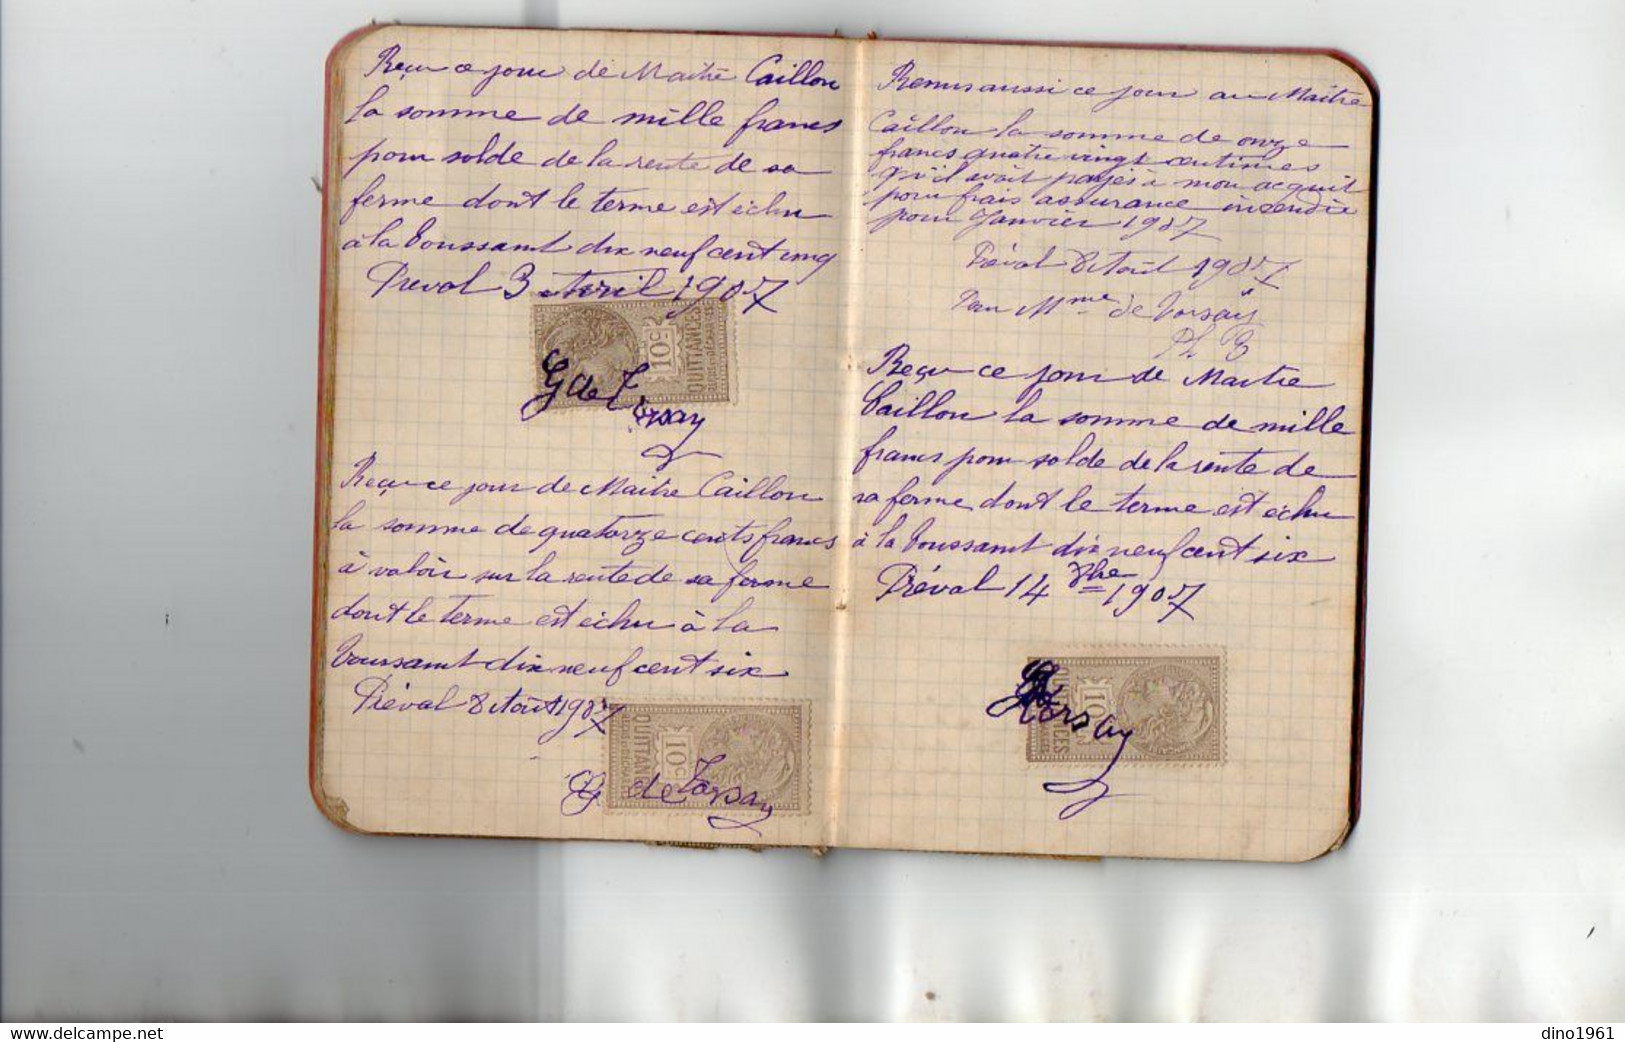 Reçu ce jour de Maitre Caillon
la somme de mille francs
pour solde de la rente de sa
ferme dont le terme est échu
à la Toussaint dix neuf cent cinq
Préval 3 Avril 1907
10c
QUITTANCES
G de Torsay
Reçu ce jour de Maitre Caillon
la somme de quatorze cents francs
à valoir sur la rente de sa ferme
dont le terme est échu à la
Toussaint dix neuf cent six
Préval 8 Août 1907
10c
QUITTANCES
G de Torsay
Remis aussi ce jour au Maître
Caillon la somme de onze
francs quatre vingt centimes
qu'il avait payés à mon acquit
pour frais assurance incendie
pour Janvier 1907
Préval 8 Août 1907
Pour Mme de Torsay
Reçu ce jour de Maitre
Caillon la somme de mille
francs pour solde de la rente de
sa ferme dont le terme est échu
à la Toussaint dix neuf cent six
Préval 14 8bre 1907
10c
QUITTANCES
Torsay
www.delcampe.net
dino1961